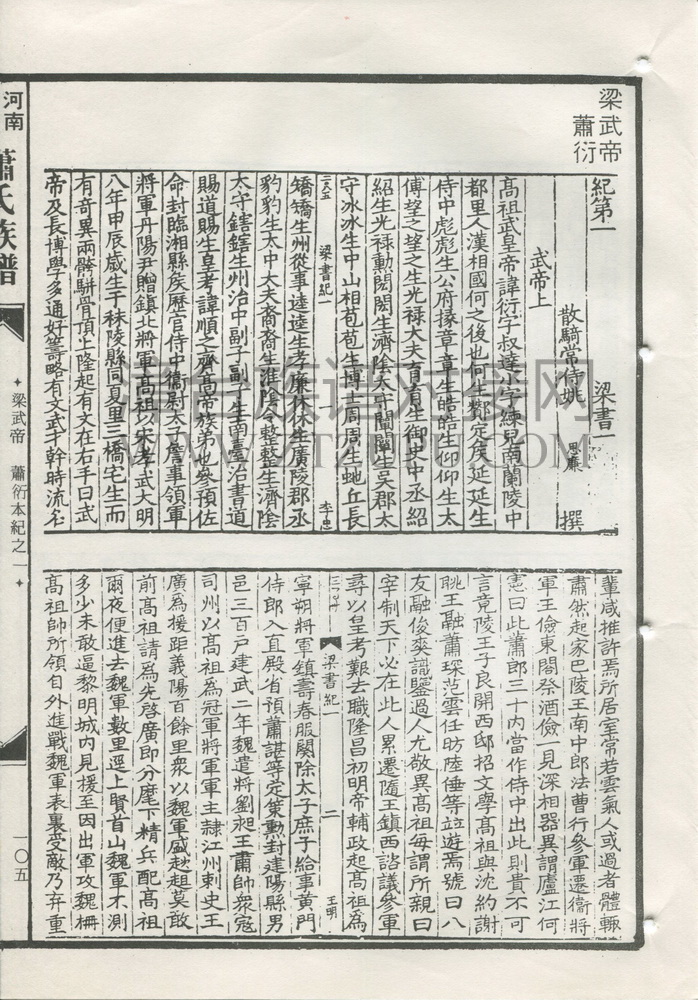 梁武帝
蕭衍
紀第一
梁書一
散騎常侍姚
思廉
撰
武帝上
髙祖武皇帝諱衍字叔達小字練兒南蘭陵中
都里人漢相國何之後也何生酇定侯延延生
侍中彪彪生公府掾章章生皓皓生仰仰生太
傅望之望之生光祿大夫育育生御史中丞紹
紹生光祿勳閎閎生濟陰太守闡闡生吳郡太
守冰冰生中山相苞苞生博士周周生蛇丘長
梁書紀一
李忠
矯矯生州從事逵逵生孝廉休休生廣陵郡丞
豹豹生太中大夫裔裔生淮陰令整整生濟陰
太守鎋鎋生州治中副子副子生南臺治書道
賜道賜生皇考諱順之齊髙帝族弟也參預佐
命封臨湘縣侯歷官侍中衞尉太子詹事領軍
將軍丹陽尹贈鎮北將軍髙祖以宋孝武大明
八年甲辰歲生于秣陵縣同夏里三橋宅生而
有奇異兩骻駢骨頂上隆起有文在右手曰武
帝及長博學多通好籌略有文武才幹時流名
輩咸推許焉所居室常若雲氣人或過者體輒
肅然起家巴陵王南中郎法曹行參軍遷衞將
軍王儉東閤祭酒儉一見深相器異謂廬江何
憲曰此蕭郎三十內當作侍中出此則貴不可
言竟陵王子良開西邸招文學髙祖與沈約謝
朓王融蕭琛范雲任昉陸倕等竝遊焉號曰八
友融俊爽識鑒過人尤敬異髙祖每謂所親曰
宰制天下必在此人累遷隨王鎮西諮議參軍
尋以皇考艱去職隆昌初明帝輔政起髙祖爲
梁書紀一
二
王明
寧朔將軍鎮壽春服闋除太子庶子給事黃門
侍郎入直殿省預蕭諶等定策勳封建陽縣男
邑三百戶建武二年魏遣將劉昶王肅帥衆寇
司州以髙祖爲冠軍將軍軍主隷江州刺史王
廣爲援距義陽百餘里衆以魏軍盛趑趄莫敢
前髙祖請爲先啓廣即分麾下精兵配髙祖
爾夜便進去魏軍數里逕上賢首山魏軍不測
多少未敢逼黎明城內見援至因出軍攻魏柵
髙祖帥所領自外進戰魏軍表裏受敵乃弃重
河南
蕭氏族譜
梁武帝 蕭衍本紀之一
一〇五
WWW.ZTZUPU.COM